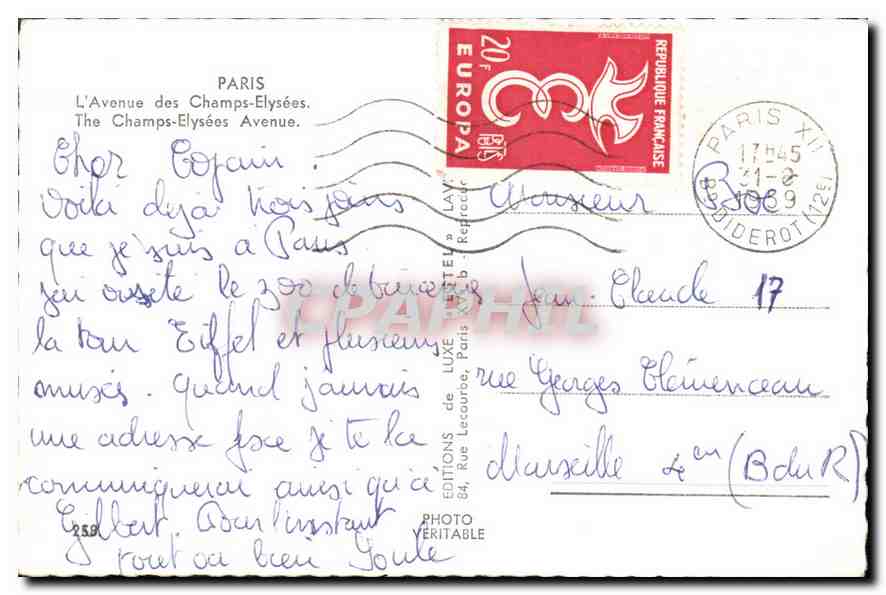 PARIS
L'Avenue des Champs-Elysées.
The Champs-Elysées Avenue.
Cher Copain.
Voilà déjà trois jours
que je suis à Paris
j'ai visité le zoo de Vincennes
la tour Eiffel et plusieurs
musés. Quand j'aurais
une adresse fixe je te la
communiquerai ainsi qu'à
Gilbert. Pour l'instant
tout va bien
259
EDITIONS de LUXE « ESTEL »
84, Rue Lecourbe, Paris XV
PHOTO
VÉRITABLE
REPUBLIQUE FRANÇAISE
20F
EUROPA
PARIS XII
17H45
31-8
1959
BD DIDEROT (12E)
Monsieur
Jean-Claude 17
rue Georges Clémenceau
Marseille 4em (B du R)
CPAPHIL